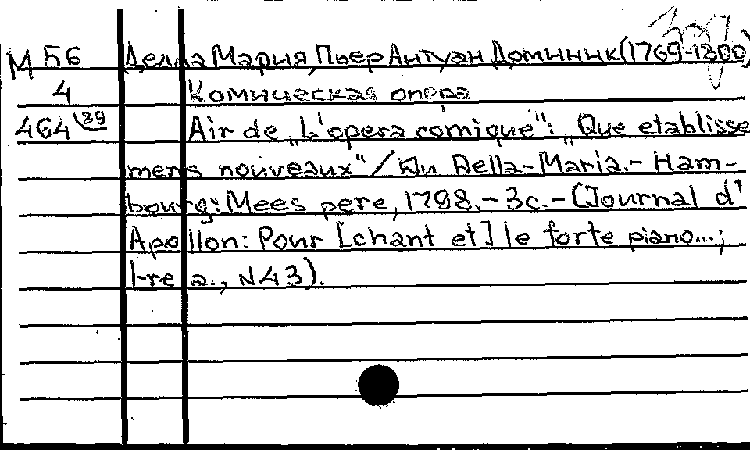 М 56 Делла Мария, Пьер Антуан Доминик (1769-1800)
4 Комическая опера
464 (39 Air de „L'opera comique": „Que etablisse
mens nouveaux" / Du Della-Maria.- Ham-
bourg: Mees pere, 1798.- 3c.- (Journal d'
Apollon: Pour [chant et] le forte piano...;
1-re a., N43).